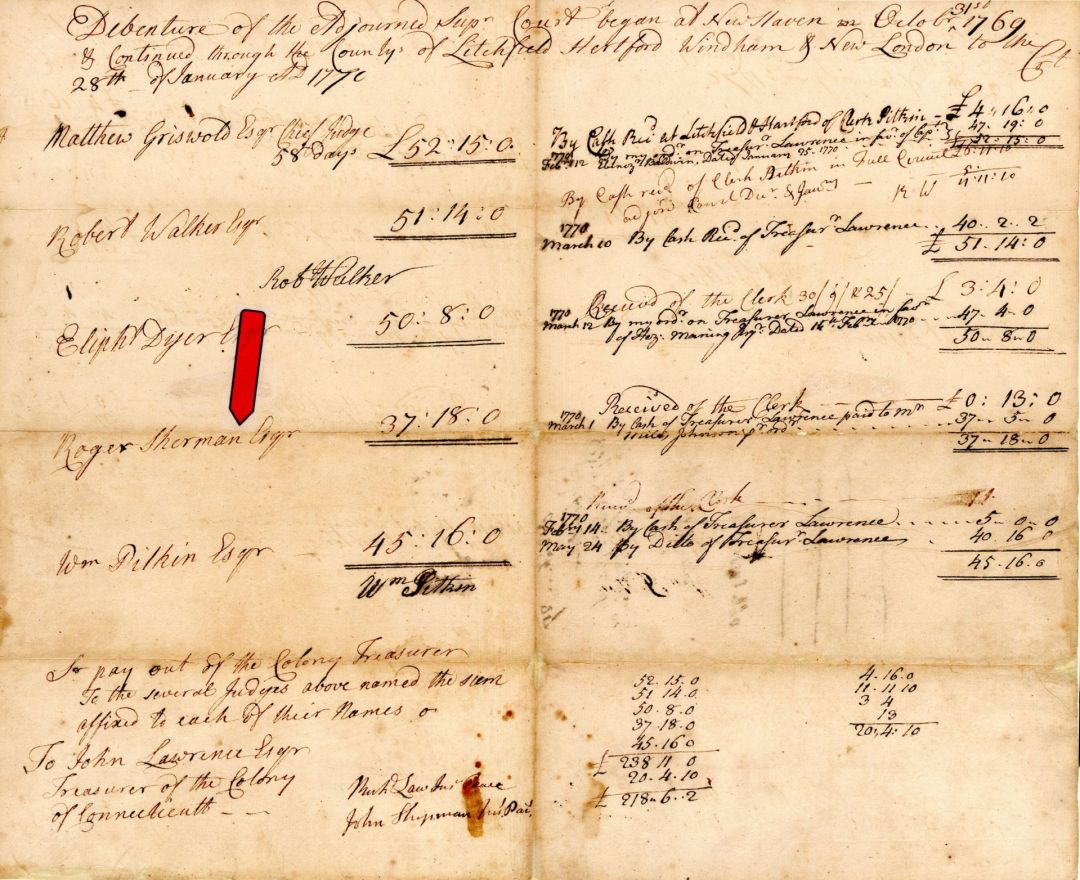 Debenture of the Adjourned Supr Court began at New Haven in Octobr 31st 1769
& Continued through the Countys of Litchfield Hertford Windham & New London to the
28th of January AD 1770
Matthew Griswold Esqr Chief Judge
58 days £52:15:0
By Cash Recd at Litchfield & Hartford of Clerk Pitkin - £4:16:0
1770
Febr 12 By my ordr on Treasurr Lawrence in favr of Capt 47:19:0
Ebenezr Baldwin, Dated January 25. 1770 £52:15:0
By Cash recd of Clerk Pitkin in Full Circuit
adjornd Court Decr & Janry 11:11:10
Robert Walker Esqr 51:14:0
1770
March 10 By Cash Recd of Treasurr Lawrence 40..2..2
£51.14:0
Robt Walker
Eliphr Dyer Esqr 50:8:0
Received of the Clerk 30/ 9/ & 25/ - £3:4:0
1770
March 12 By my ordr on Treasurer Lawrence in favr 47..4..0
of Hez. Maning Dated 14th Febry 1770
50..8..0
Roger Sherman Esqr 37:18:0
Received of the Clerk £0:13:0
1770
March 1 By Cash of Treasurer Lawrence paid to Mr 37..5..0
Miles Johnson pr ordr
37..18..0
Recevd of the Clerk
1770
Febry 14. By Cash of Treasurer Lawrence 5..0..0
May 24 By Ditto of Treasurr Lawrence 40 16 0
45.16.0
Wm Pitkin Esqr 45:16:0
Wm Pitkin
Sr pay out of the Colony Treasurer
To the several Judges above named the sum
affixed to each of their Names
To John Lawrence Esqr
Treasurer of the Colony
of Connecticutt - -
Richd Law Jus Peace
John Shipman Jus Pac
52.15.0
51 14.0
50.8.0
37.18.0
45.16 0
£238 11 0
20.4.10
£218..6..2
4.16.0
11.11 10
3 4
13
20:4:10